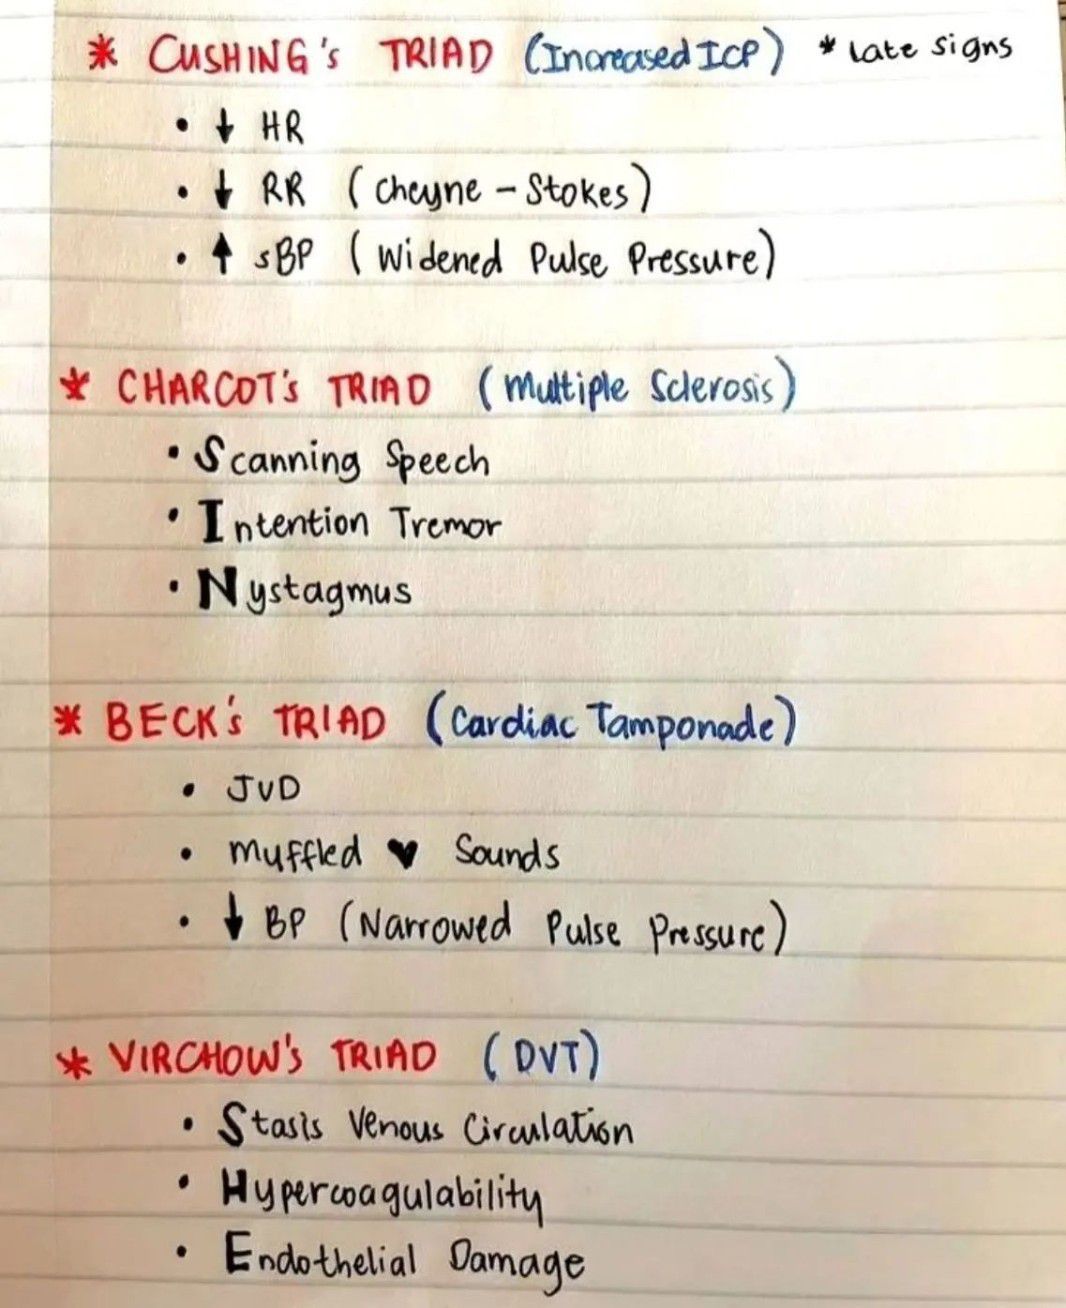 * CUSHING's TRIAD (Increased ICP) * Late signs
• ↓ HR
• ↓ RR (Cheyne - Stokes)
• ↑ sBP (Widened Pulse Pressure)
* CHARCOT's TRIAD (Multiple Sclerosis)
• Scanning Speech
• Intention Tremor
• Nystagmus
* BECK's TRIAD (Cardiac Tamponade)
• JVD
• Muffled ♥ Sounds
• ↓ BP (Narrowed Pulse Pressure)
* VIRCHOW's TRIAD (DVT)
• Stasis Venous Circulation
• Hypercoagulability
• Endothelial Damage